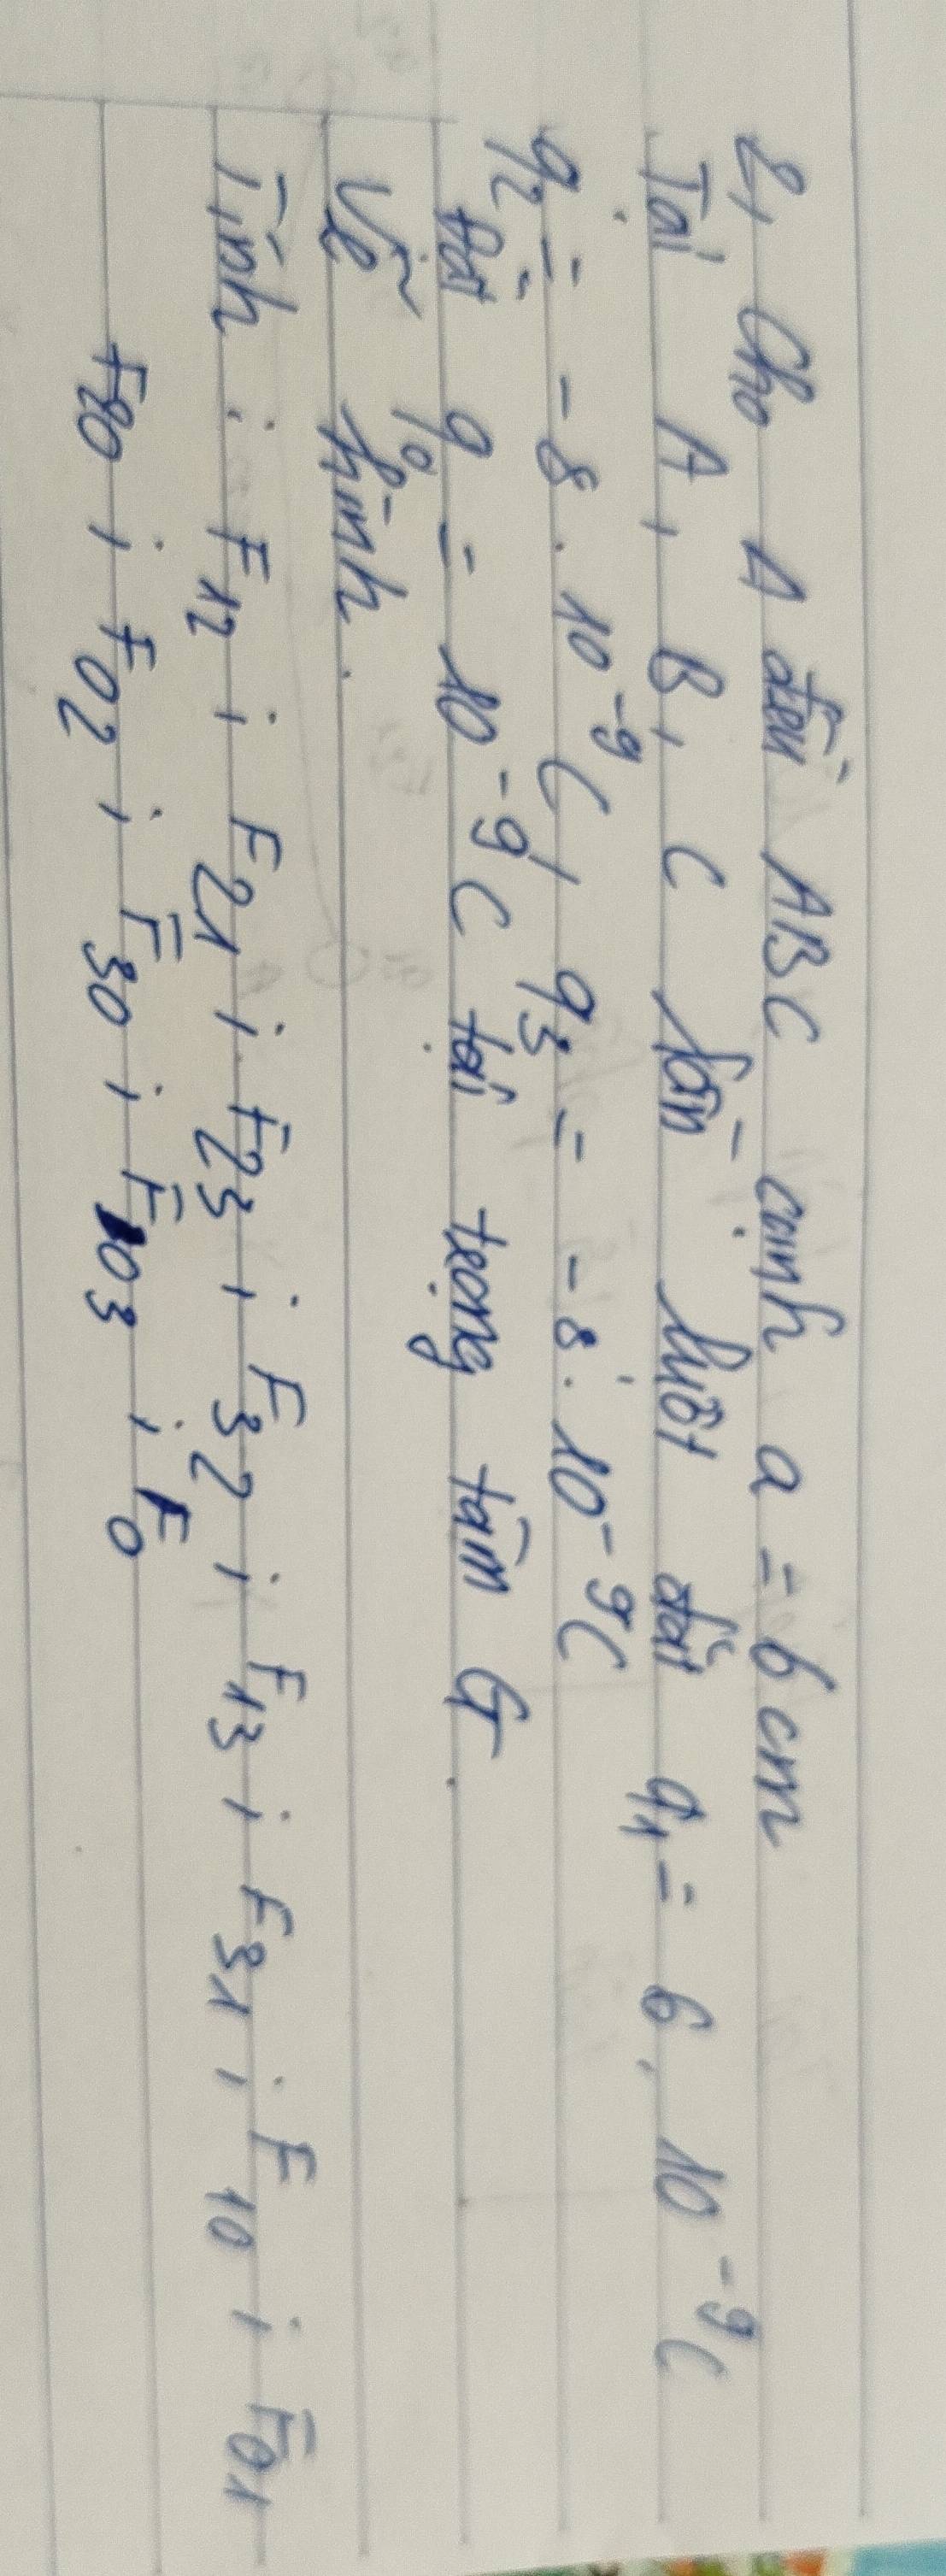 2, Cho Δ đều ABC cạnh a = 6 cm
Tại A, B, C lần lượt đặt q1 = 6. 10⁻⁹C
q2 = -8. 10⁻⁹C, q3 = -8. 10⁻⁹C
Đặt q0 = 10⁻⁹C tại trọng tâm G.
Vẽ hình.
Tính : F12 ; F21 ; F23 ; F32 ; F13 ; F31 ; F10 ; F01
F20 ; F02 ; F30 ; F03 ; F0